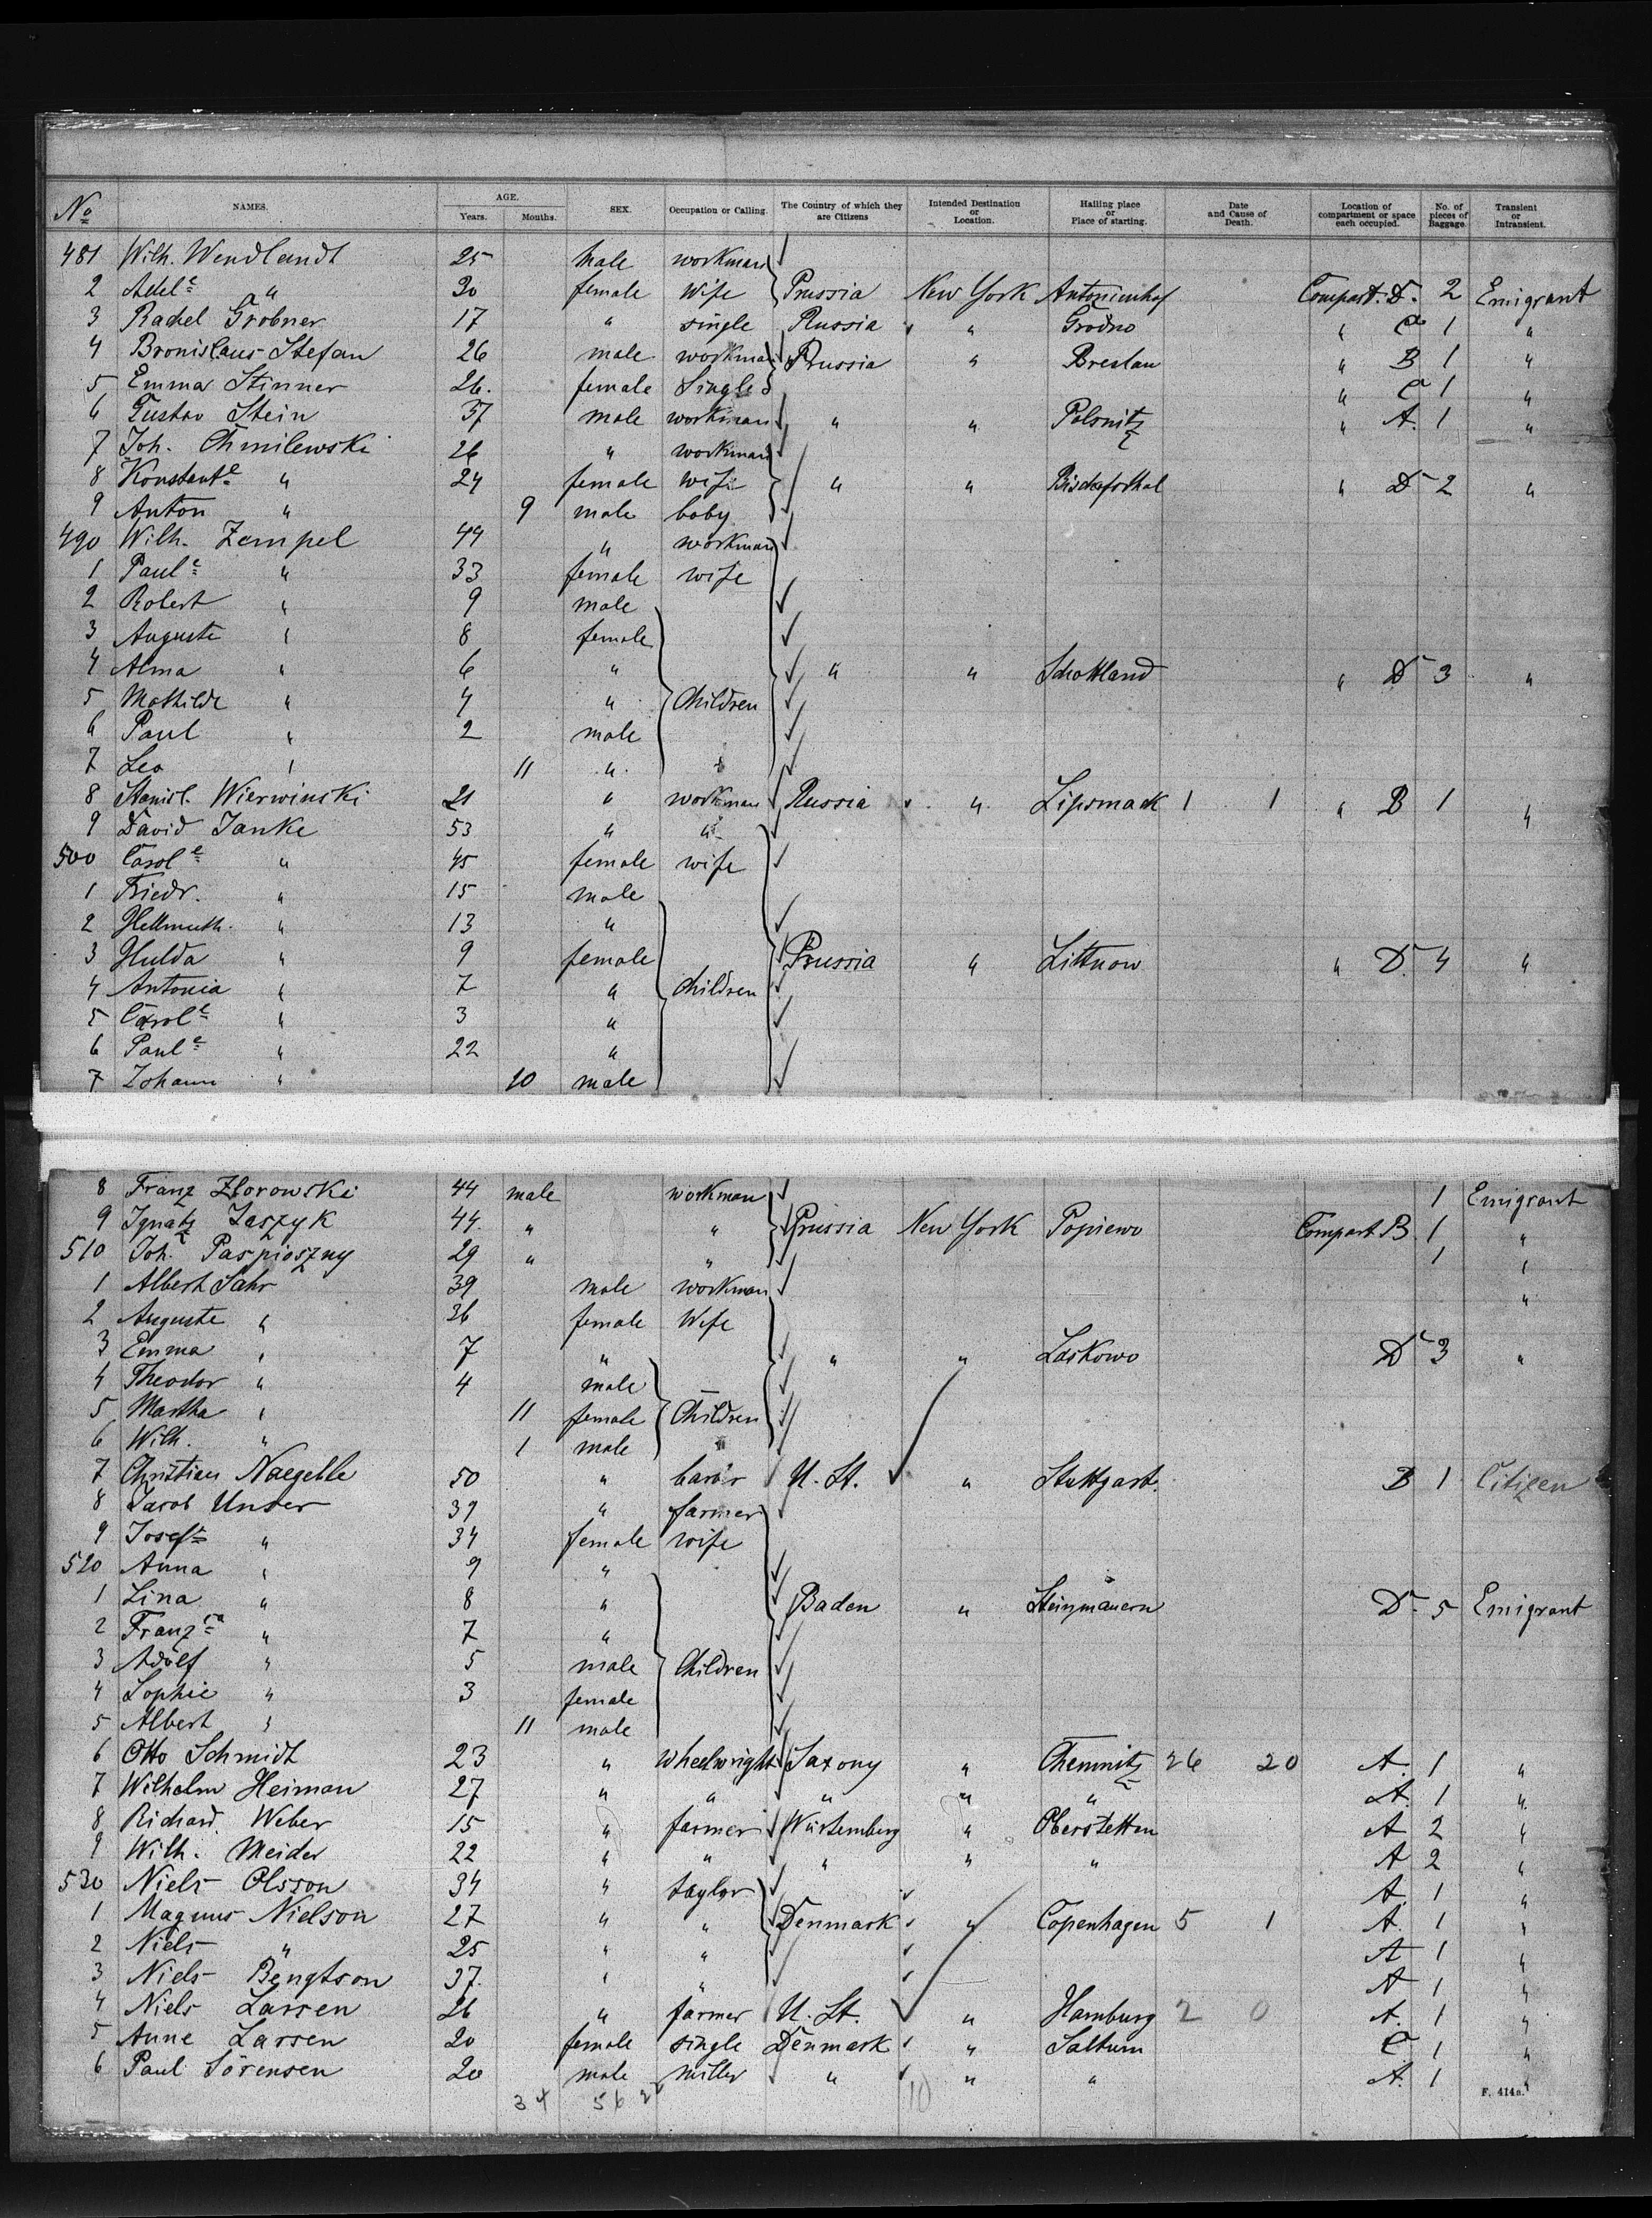 No NAMES. AGE. Years. Months. SEX. Occupation or Calling. The Country of which they are Citizens Intended Destination or Location. Hailing place or Place of starting. Date and Cause of Death. Location of compartment or space each occupied. No. of pieces of Baggage. Transient or Intransient.
481 Wilh. Wendlandt 25 male workman
2 Adele " 30 female Wife Prussia New York Antonienhof Compart. D. 2 Emigrant
3 Rachel Grobner 17 " single Russia " Grodno " C 1 "
4 Bronislaus Stefan 26 male workman Prussia " Breslau " B 1 "
5 Emma Stinner 26. female Single " C 1 "
6 Gustav Stein 37 male workman " " Polsnitz " A. 1 "
7 Joh. Chmilewski 26 " workman
8 Konstante " 24 female wife " " Bischofsthal " D 2 "
9 Anton " 9 male baby
490 Wilh. Zempel 44 " workman
1 Paule " 33 female wife
2 Robert " 9 male
3 Auguste " 8 female
4 Alma " 6 " " " Schottland " D 3 "
5 Mathilde " 4 " Children
6 Paul " 2 male
7 Leo " 11 "
8 Stanisl. Wierwinski 21 " workman Russia " Lipsmack 1 1 " B 1 "
9 David Janke 53 " "
500 Carole " 45 female wife
1 Friedr. " 15 male
2 Hellmuth. " 13 "
3 Hulda " 9 female Prussia " Littnow " D. 4 "
4 Antonia " 7 " Children
5 Carole " 3 "
6 Paule " 22 "
7 Johann " 10 male
8 Franz Zlorowski 44 male workman 1 Emigrant
9 Ignatz Jaszyk 44. " " Prussia New York Popiewo Compart B. 1 "
510 Joh. Paspioszny 29 " " 1 "
1 Albert Sahr 39 male workman "
2 Auguste " 36 female Wife
3 Emma " 7 " " " Laskowo D 3 "
4 Theodor " 4 male
5 Martha " 11 female Children
6 Wilh. " 1 male
7 Christian Naegelle 50 " U. St. " Stuttgart. B 1 Citizen
8 Jacob Unser 39 " farmer
9 Josefe " 34 female wife
520 Anna " 9 "
1 Lina " 8 " Baden " Steinmauern D. 5 Emigrant
2 Franzca " 7 "
3 Adolf " 5 male Children
4 Sophie " 3 female
5 Albert " 11 male
6 Otto Schmidt 23 " wheelwright Saxony " Chemnitz 26 20 A. 1 "
7 Wilhelm Heiman 27 " " " " " A. 1 "
8 Richard Weber 15 " farmer Würtemberg " Oberstetten A 2 "
9 Wilh. Meider 22 " " " " " A 2 "
530 Niels Olsson 34 " taylor A. 1 "
1 Magnus Nielson 27 " " Denmark " Copenhagen 5 1 A. 1 "
2 Niels " 25 " " A 1 "
3 Niels Bengtson 37. " " A 1 "
4 Niels Larsen 26 " farmer U. St. " Hamburg 2 0 A. 1 "
5 Anne Larsen 20 female single Denmark " Saltum C 1 "
6 Paul Sörensen 20 male miller " " " A. 1 "
34 56 10
F. 414a.